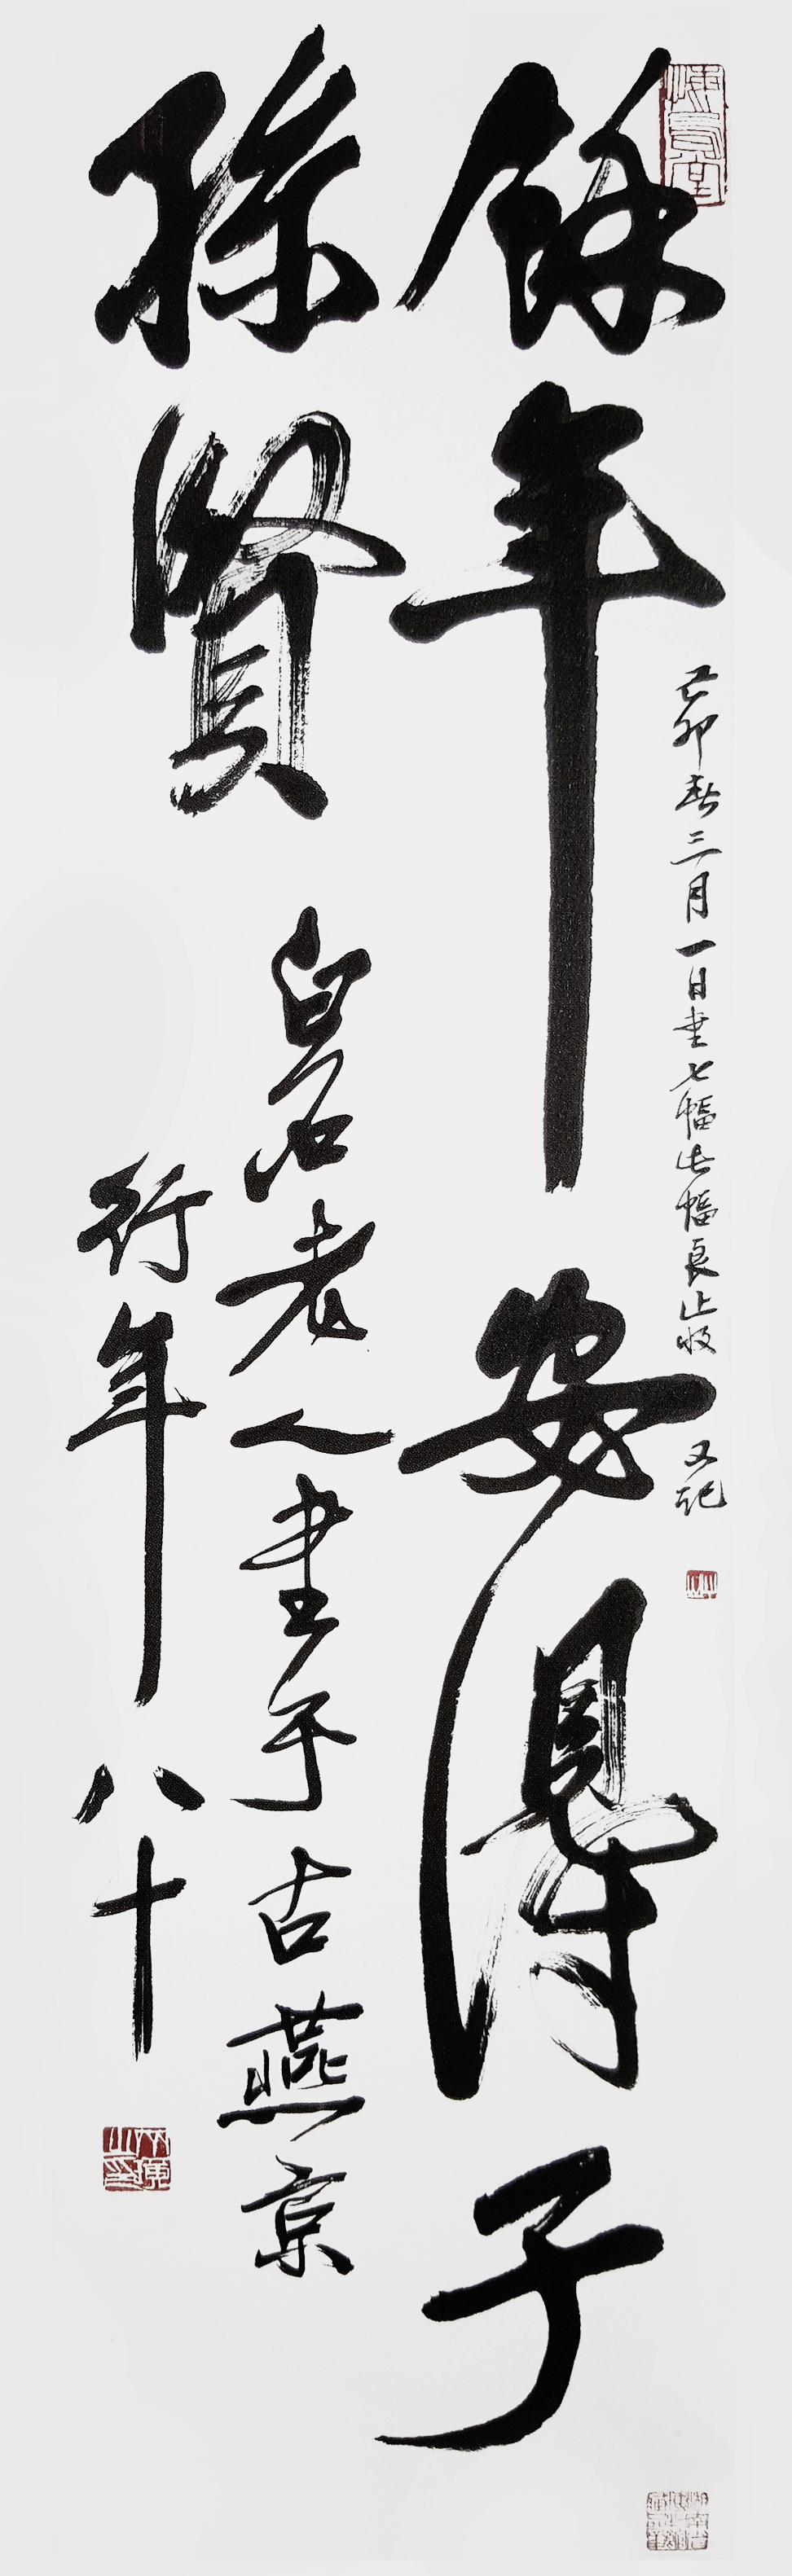 餘年安得子
孫賢
白石老人書于古燕京
行年八十
己卯春三月一日書七幅此幅良止收
又記